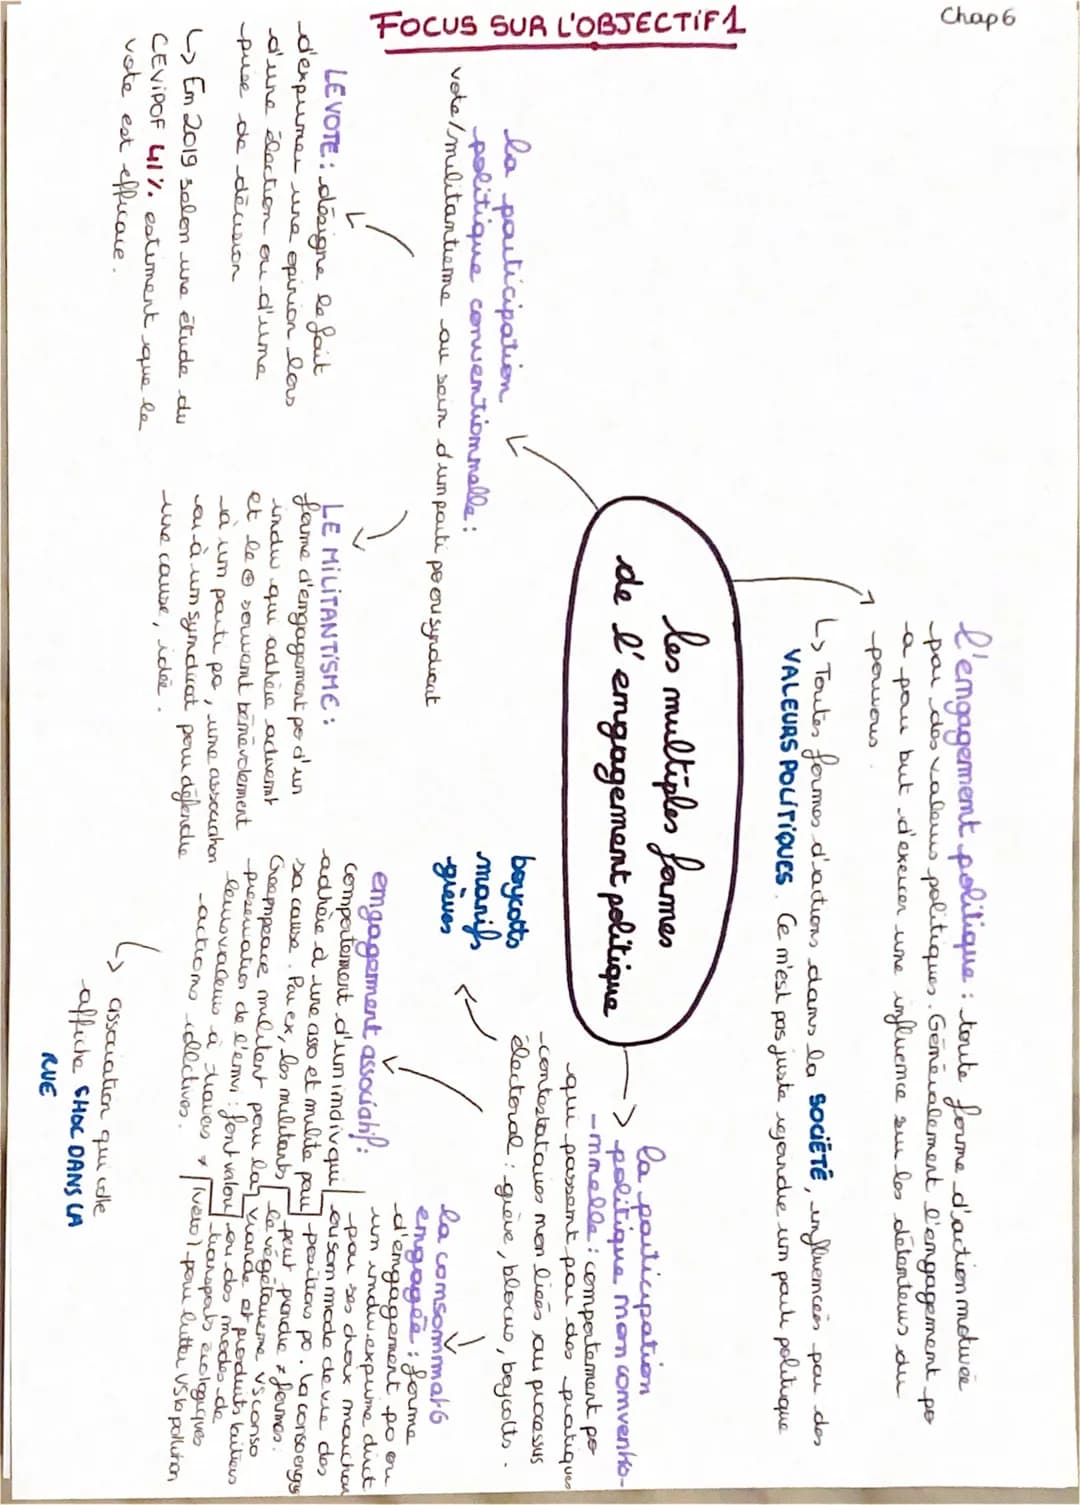 Chap 6
FOCUS SUR L'OBJECTIF 1
l'engagement politique : toute forme d'action motivée
par des valeurs politiques. Généralement l'engagement po
a pour but d'exercer une influence sur les détenteurs du
pouvoir.
↳ Toutes formes d'actions dans la SOCIÉTÉ, influencées par des
VALEURS POLITIQUES. Ce n'est pas juste rejoindre un parti politique
les multiples formes
de l'engagement politique
la participation
politique conventionnelle :
vote/militantisme au sein d'un parti po ou syndicat
LE VOTE : désigne le fait
d'exprimer une opinion lors
d'une élection ou d'une
prise de décision
↳ En 2019 selon une étude du
CEVIPOF 41% estiment que le
vote est efficace.
LE MILITANTISME :
forme d'engagement po d'un
indiv qui adhère activemt
et le ⊕ souvent bénévolement
à un parti po, une association
ou à un syndicat pour défendre
une cause, idée.
la participation
politique non convention-
-nnelle : comportement po
qui passent par des pratiques
contestataires non liées au processus
électoral : grève, blocus, boycotts.
boycotts
manifs
grèves
engagement associatif :
comportement d'un indiv qui
adhère à une asso et milite pour
sa cause. Par ex, les militants
Greenpeace militent pour la
préservation de l'envi : font valoir
leurs valeurs à travers ≠
actions collectives.
↳ association qui colle
affiche CHOC DANS LA
RUE
la consommat°
engagée : forme
d'engagement po où
un indiv exprime
par ses choix marchan
ou son mode de vie des
positions po. la conso engagée
peut prendre ≠ formes :
le végétarisme VS conso
viande et produits laitiers
ou des modes de
transports écologiques
(vélo) pour lutter VS la pollution